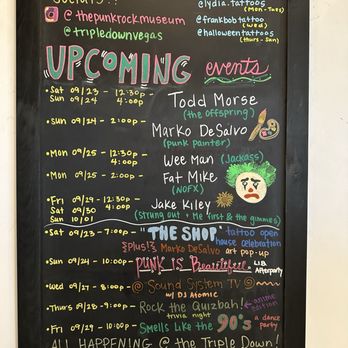 @thepunkrockmuseum
@tripledownvegas
@lydia.tattoos
(Mon-Tues)
@frankbobtattoo
(wed)
@halloweentattoos
(thurs - Sun)
UPCOMING events
Sat 09/23 - 12:30p -
Sun 09/24 4:00p
Todd Morse
(the offspring)
Sun 09/24 - 2:00pm
Marko DeSalvo
(punk painter)
Mon 09/25 - 12:30p -
4:00p
Wee Man (Jackass)
Mon 09/25 - 2:00pm
Fat Mike
(NOFX)
Fri 09/29 - 12:30p -
Sat 09/30 4:00p
Sun 10/01
Jake Kiley
(strung out + me first & the gimmes)
Sat 09/23 - 7:00p - "THE SHOP" tattoo open
house celebration
[plus!] Marko DeSalvo art pop-up
Sun 09/24 - 10:00p - PUNK IS Beautiful. LIB
Afterparty
Wed 09/27 - 8:00p - @ Sound System TV @
w/ DJ Atomic
Thurs 09/28 - 9:00p - Rock the Quizbah! anime
edition
trivia night
Fri 09/29 - 10:00p - Smells Like the 90's a dance
party
ALL HAPPENING @ the Triple Down!